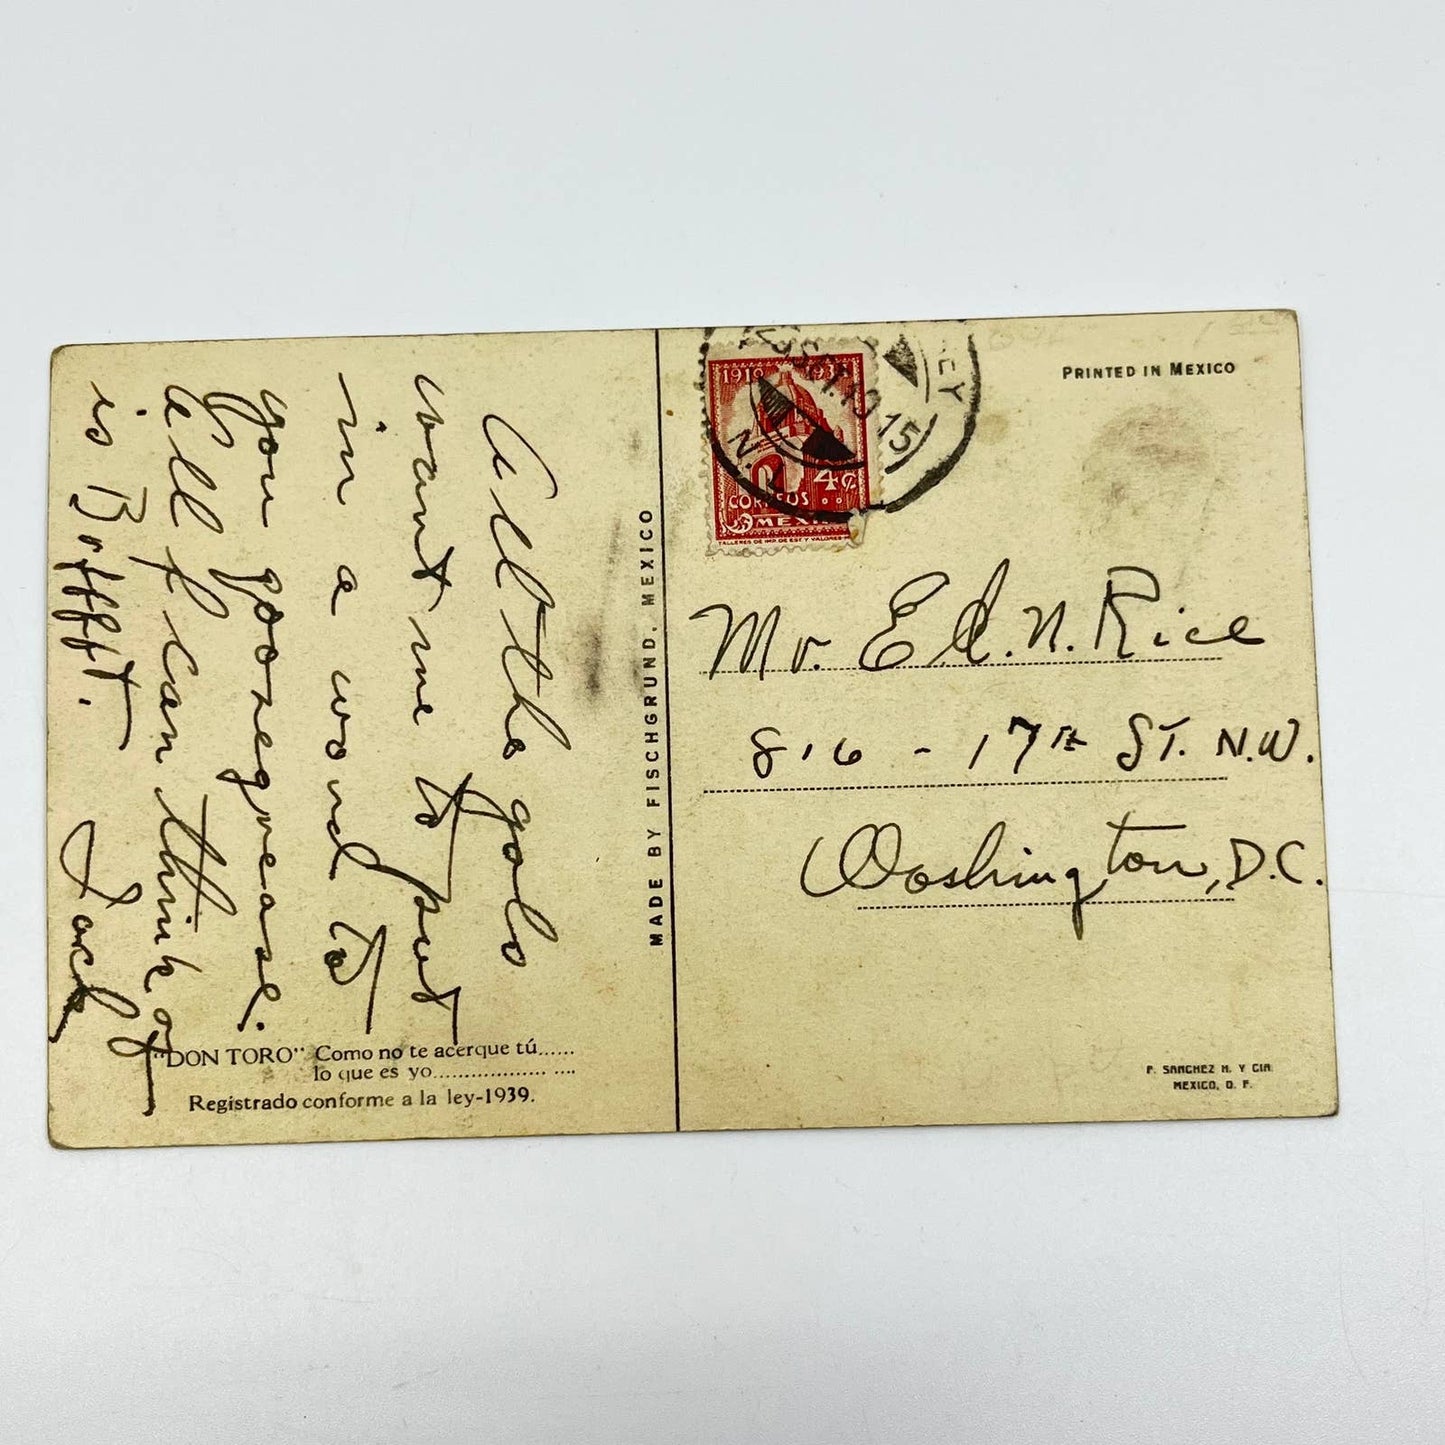 All the golo
want me to put
in a word to
you goosegrease.
All I can think of
is Brffft.
Jack
"DON TORO" Como no te acerque tú......
lo que es yo...................... ....
Registrado conforme a la ley-1939.
MADE BY FISCHGRUND, MEXICO
1910
4¢
CORREOS
MEXICO
TALLERES DE IMP. DE EST. Y VALORES
15
PRINTED IN MEXICO
Mr. Ed. N. Rice
816 - 17th ST. N.W.
Washington, D.C.
F. SANCHEZ H. Y CIA.
MEXICO, D. F.